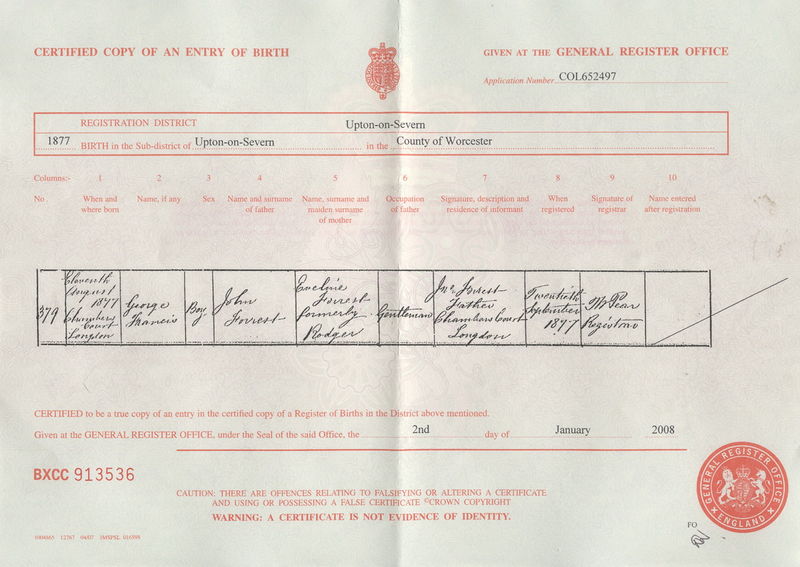 CERTIFIED COPY OF AN ENTRY OF BIRTH
GIVEN AT THE GENERAL REGISTER OFFICE
Application Number COL652497
REGISTRATION DISTRICT Upton-on-Severn
1877 BIRTH in the Sub-district of Upton-on-Severn in the County of Worcester
Columns:- 1 2 3 4 5 6 7 8 9 10
No When and where born
Name, if any
Sex
Name and surname of father
Name, surname and maiden surname of mother
Occupation of father
Signature, description and residence of informant
When registered
Signature of registrar
Name entered after registration
379
Eleventh
August
1877
Chambers
Court
Longdon
George
Francis
Boy
John
Forrest
Eveline
Forrest
formerly
Rodger
Gentleman
Jno. Forrest
Father
Chambers Court
Longdon
Twentieth
September
1877
Pear
Registrar
CERTIFIED to be a true copy of an entry in the certified copy of a Register of Births in the District above mentioned.
Given at the GENERAL REGISTER OFFICE, under the Seal of the said Office, the 2nd day of January 2008
BXCC 913536
CAUTION: THERE ARE OFFENCES RELATING TO FALSIFYING OR ALTERING A CERTIFICATE
AND USING OR POSSESSING A FALSE CERTIFICATE ©CROWN COPYRIGHT
WARNING: A CERTIFICATE IS NOT EVIDENCE OF IDENTITY.
GENERAL REGISTER OFFICE
ENGLAND
FO